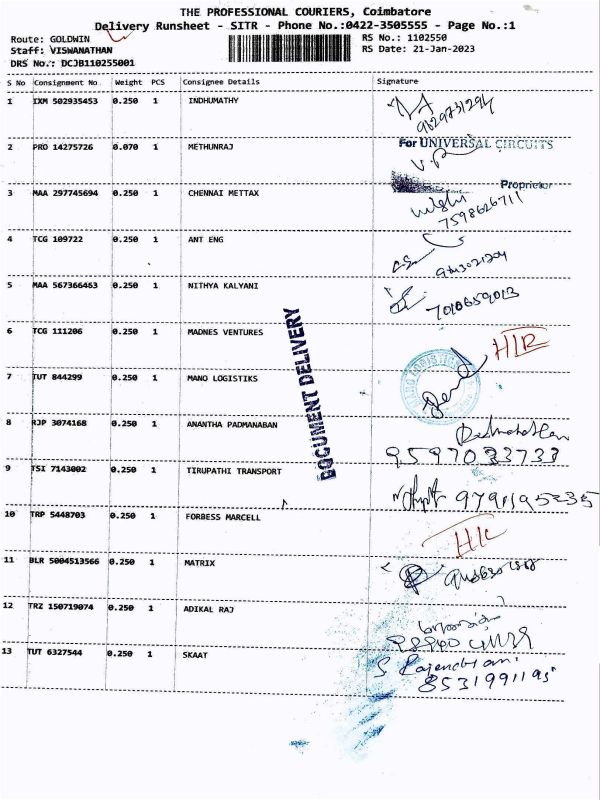 THE PROFESSIONAL COURIERS, Coimbatore
Delivery Runsheet - SITR - Phone No.:0422-3505555 - Page No.:1
Route: GOLDWIN
RS No.: 1102550
Staff: VISWANATHAN
RS Date: 21-Jan-2023
DRS No.: DCJB110255001
S No Consignment No. Weight PCS Consignee Details Signature
1 IXM 502935453 0.250 1 INDHUMATHY
2 PRO 14275726 0.070 1 METHUNRAJ
For UNIVERSAL CIRCUITS
Proprietor
3 MAA 297745694 0.250 1 CHENNAI METTAX
7598626711
4 TCG 109722 0.250 1 ANT ENG
5 MAA 567366463 0.250 1 NITHYA KALYANI
7010659013
6 TCG 111206 0.250 1 MADNES VENTURES
DOCUMENT DELIVERY
7 TUT 844299 0.250 1 MANO LOGISTIKS
8 RJP 3074168 0.250 1 ANANTHA PADMANABAN
9597033733
9 TSI 7143002 0.250 1 TIRUPATHI TRANSPORT
9791195235
10 TRP 5448703 0.250 1 FORBESS MARCELL
11 BLR 5004513566 0.250 1 MATRIX
12 TRZ 150719074 0.250 1 ADIKAL RAJ
13 TUT 6327544 0.250 1 SKAAT
S Rajendran
8531991195